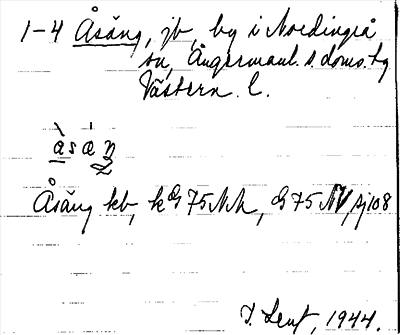 1-4 Åsäng, jb, by i Nordingrå
sn, Ångermanl. s. doms. tg
Västern. l.
àsaŋ
Åsäng kb, k 75 NV, 75 NV Aj 108
1944.